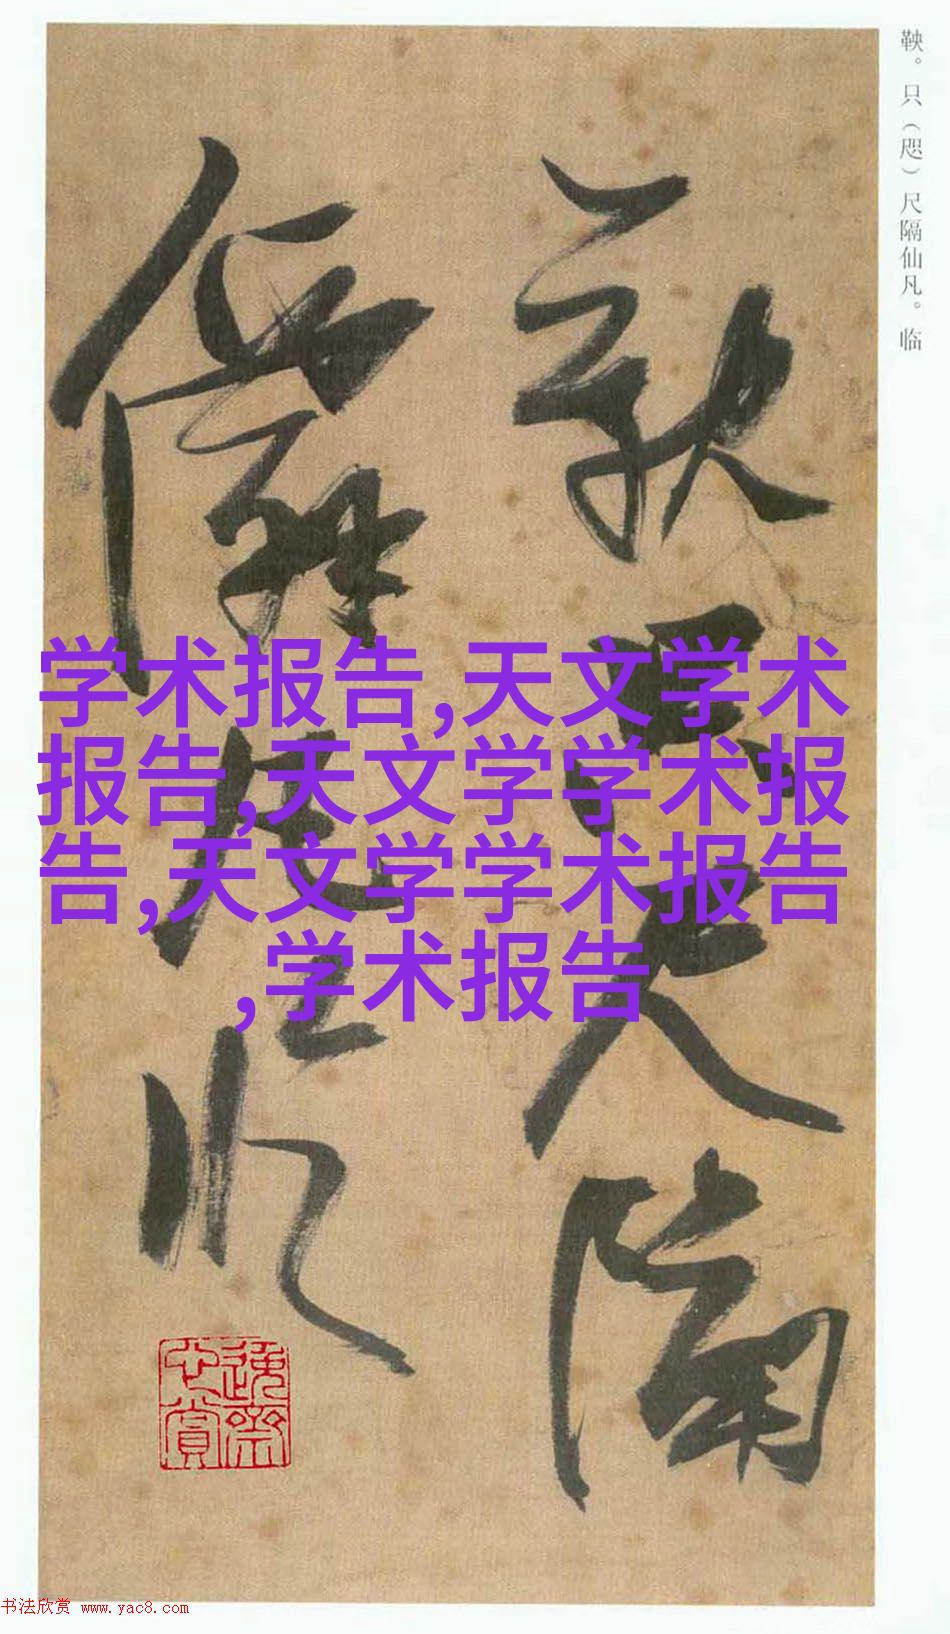 鞅。只（咫）尺隔仙凡。临
鞅只尺隔
仙凡临
学术报告,天文学术
报告,天文学学术报
告,天文学学术报告
,学术报告
书法欣赏 www.yac8.com